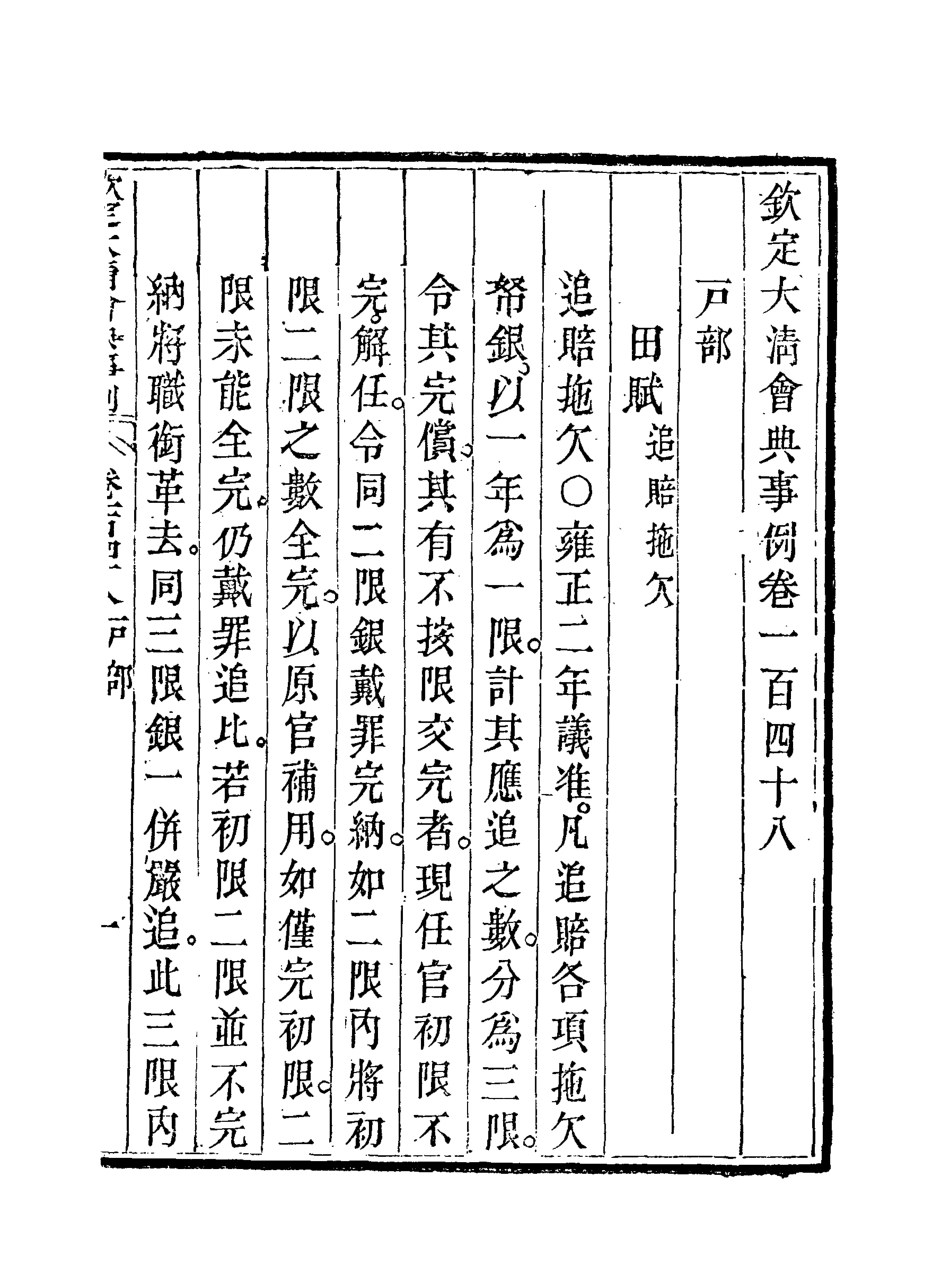 欽定大清會典事例卷一百四十八
戸部
田賦追賠拖欠
追賠拖欠〇雍正二年議准。凡追賠各項拖欠
帑銀。以一年爲一限。計其應追之數。分爲三限。
令其完償。其有不按限交完者。現任官初限不
完。解任。令同二限銀戴罪完納。如二限內將初
限二限之數全完。以原官補用。如僅完初限。二
限未能全完。仍戴罪追比。若初限二限並不完
納將職銜革去。同三限銀一併嚴追。此三限內
欽定大清會典事例 卷一百四十八 戸部 一